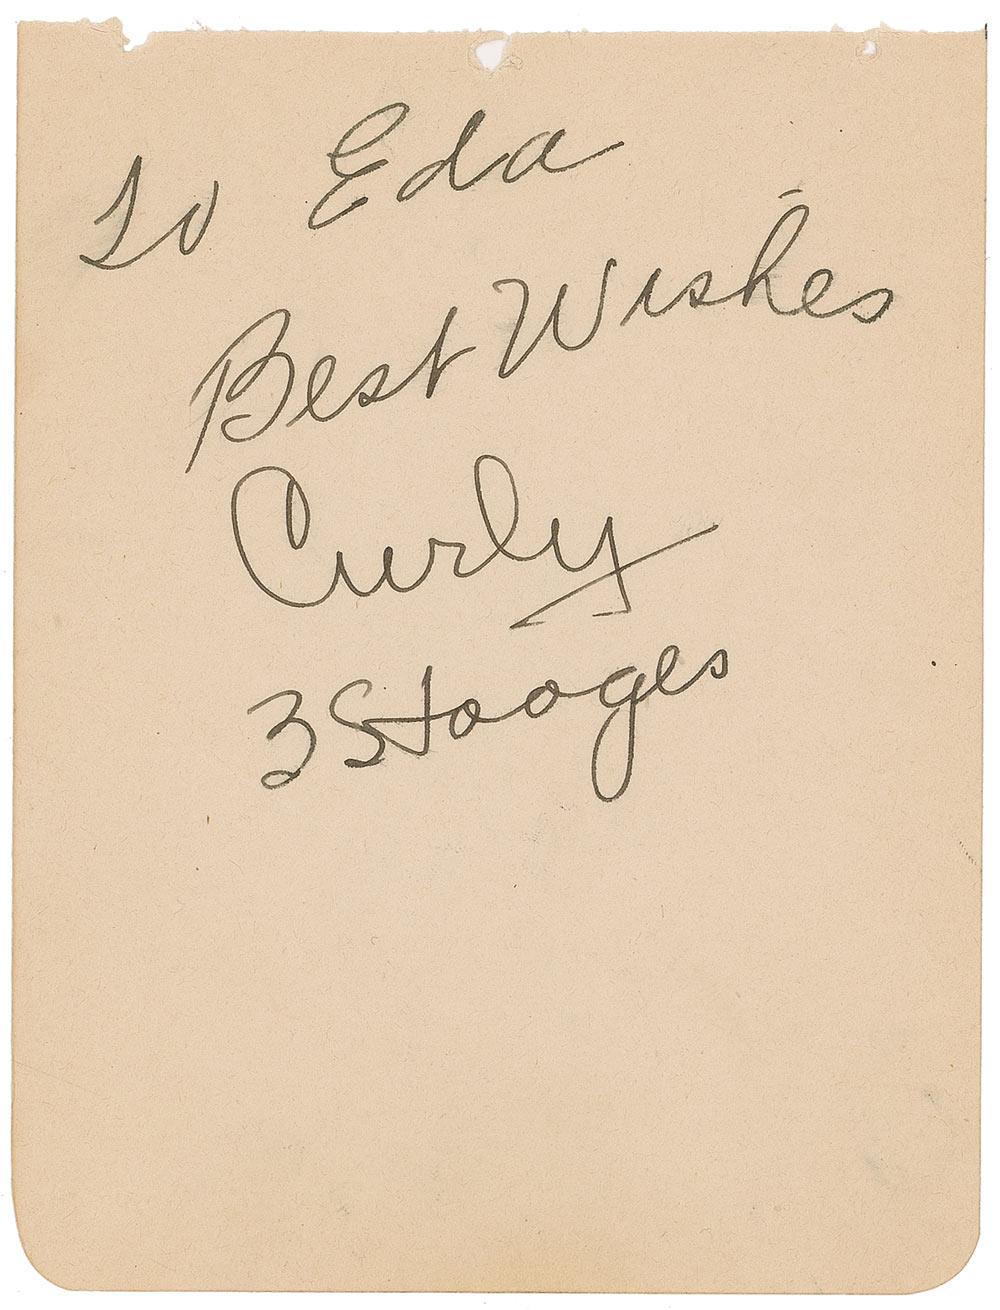 To Eda
Best Wishes
Curly
3 Stooges